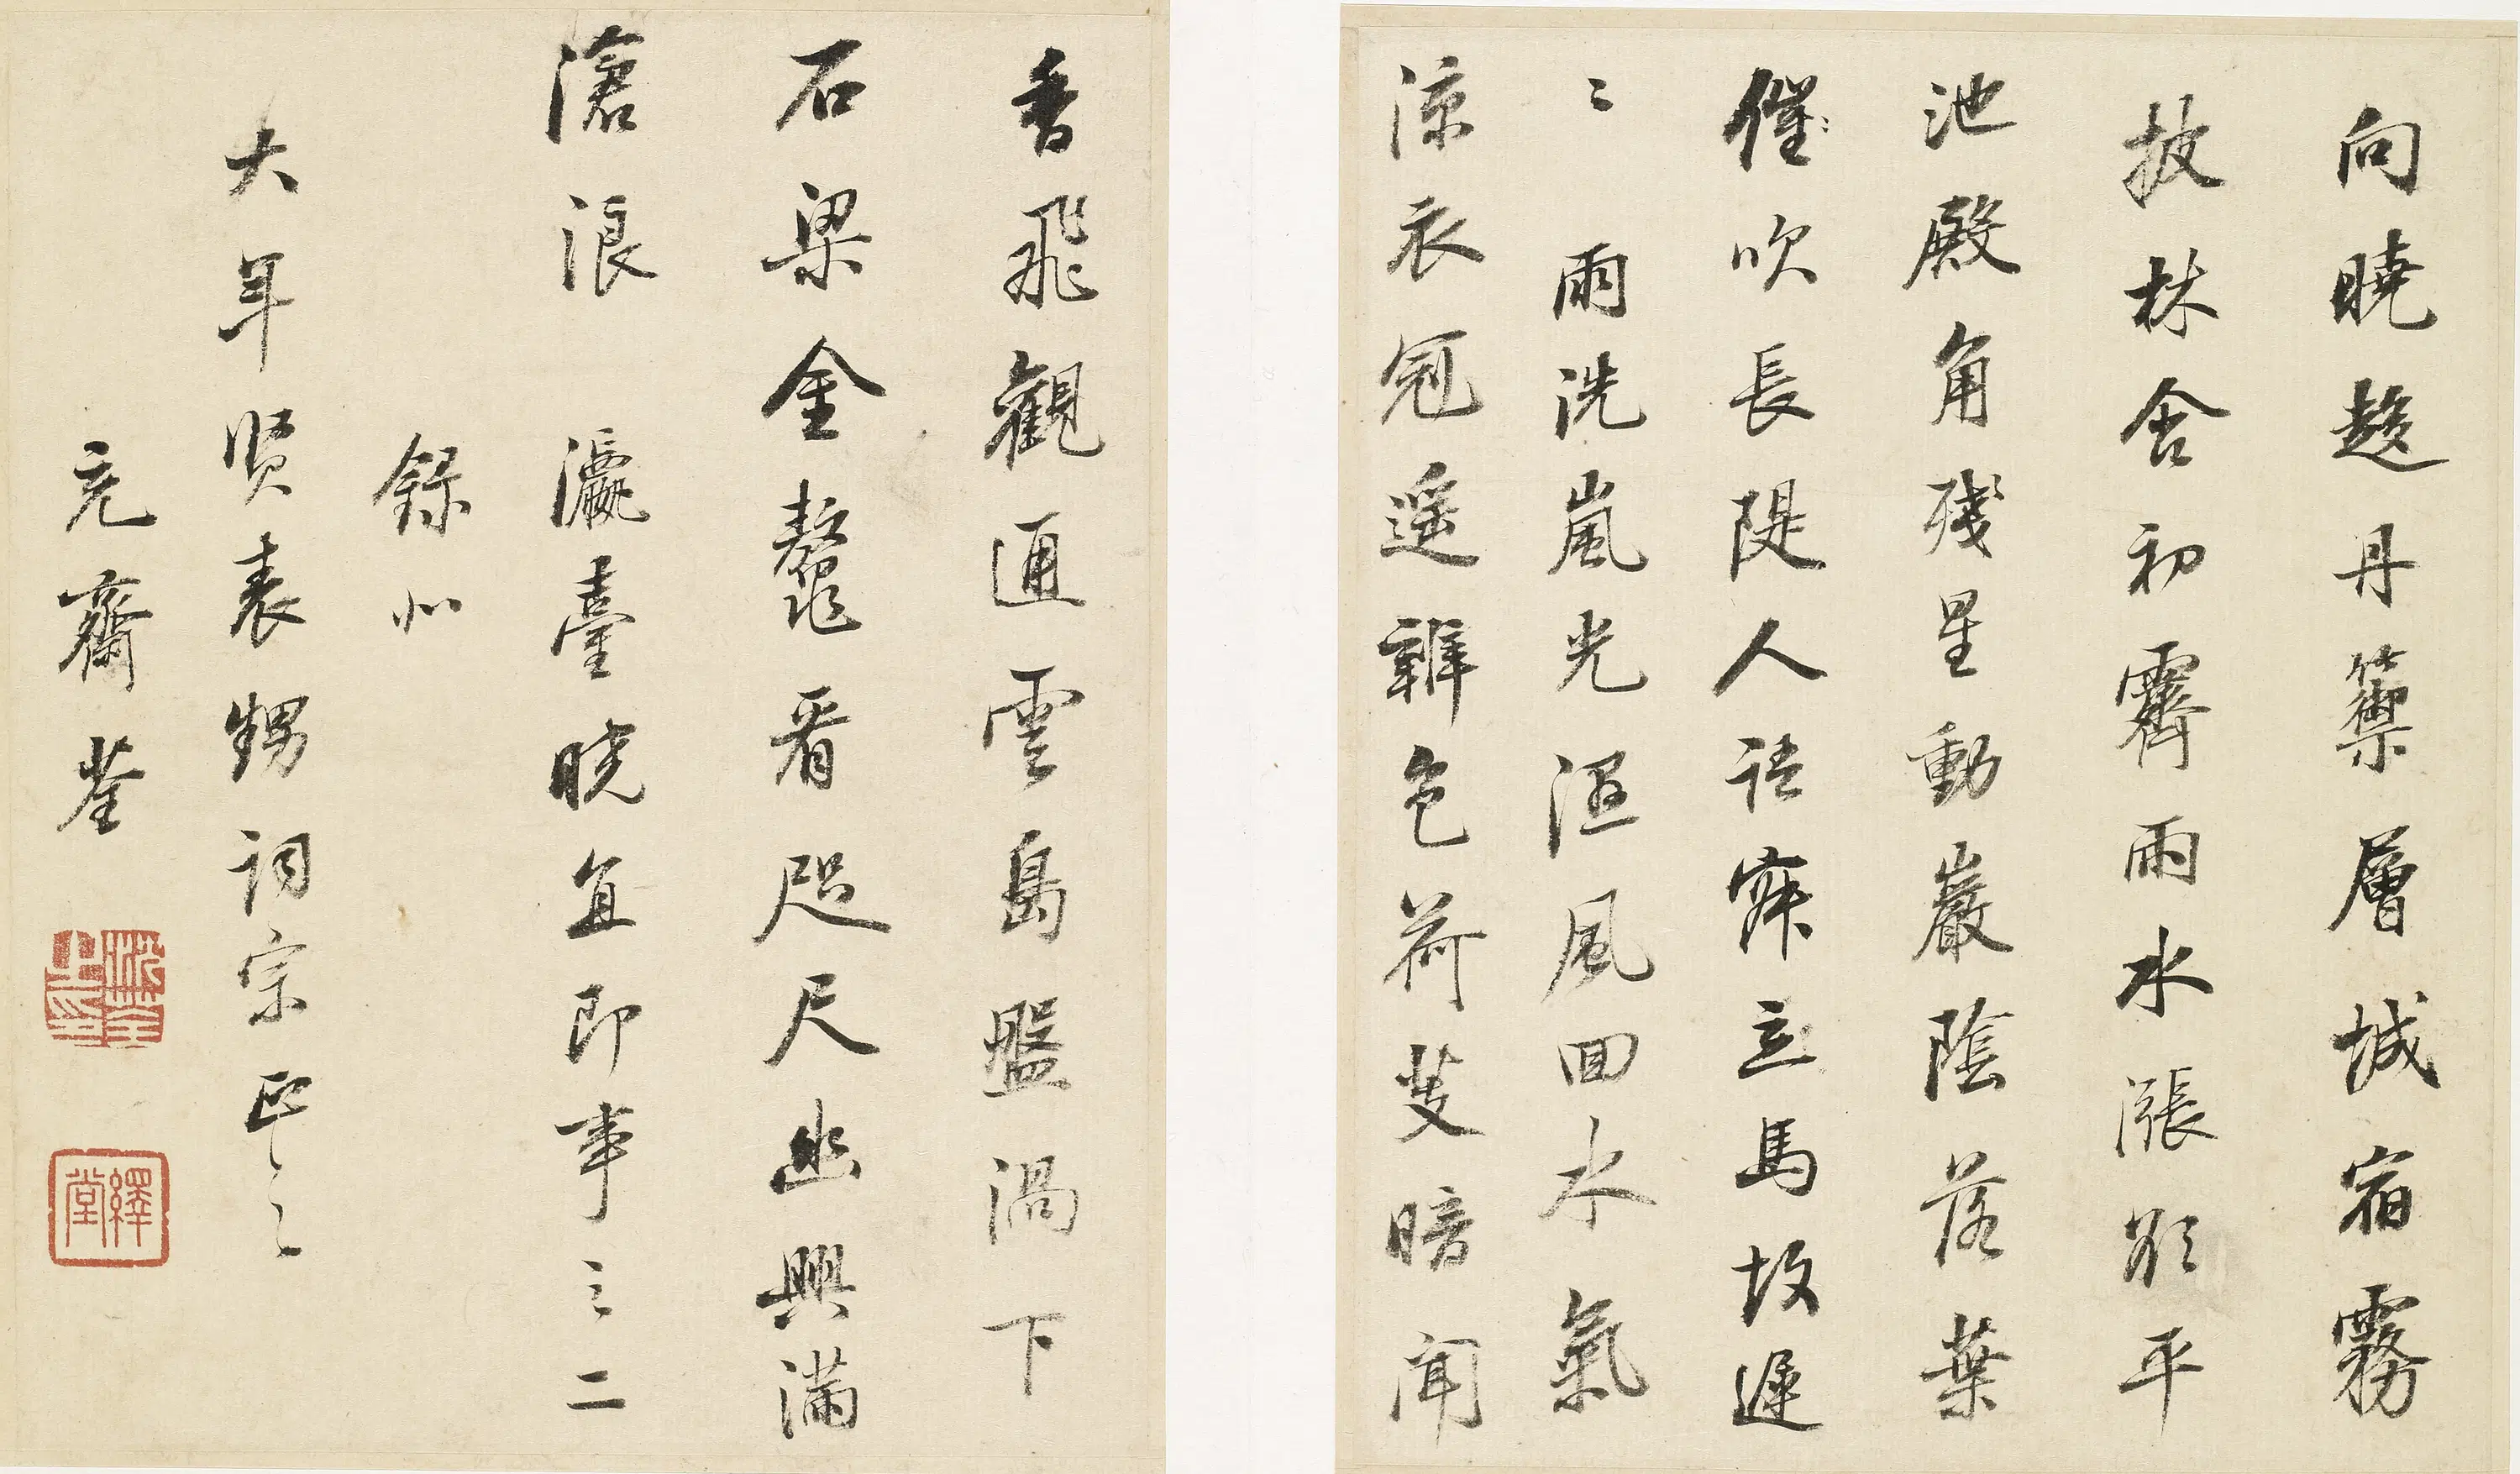 向曉趍丹籞層城宿霧
披林含初霽雨水漲欲平
池殿角殘星動巖陰落葉
催吹長隄人語寂立馬故遲
〻 雨洗嵐光溼風回水氣
涼衣冠遥辨色荷芰暗聞
香飛觀通雲島盤渦下
石梁金鼇看咫尺幽興滿
滄浪 瀛臺曉直即事之二
錄似
大年賢表甥詞宗正之
充齋荃
沈荃之印
繹堂